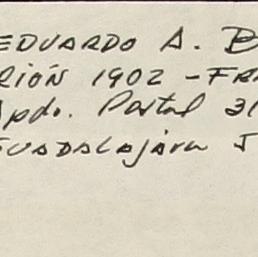 EDUARDO A. B
RIÓN 1902 - FRA
Apdo. Postal 31
GUADALAjARA J